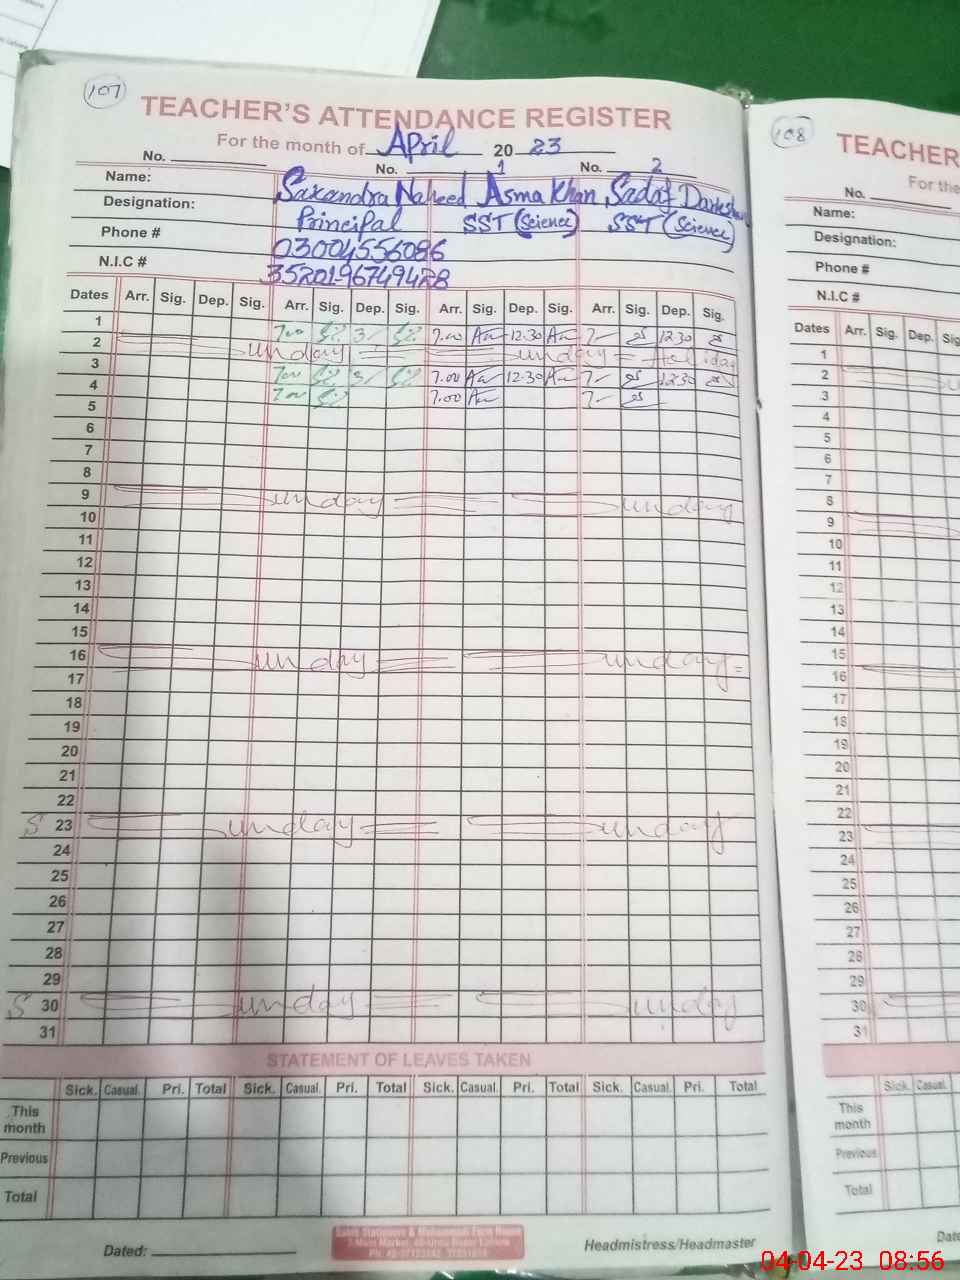 107
TEACHER'S ATTENDANCE REGISTER
For the month of April 20 23
No. No. 1 No. 2
Name: Saxandra Naheed Asma Khan Sadaf
Designation: Principal SST (Science) SST (Science)
Phone # 03004556086
N.I.C # 3520196749428
Dates Arr. Sig. Dep. Sig. Arr. Sig. Dep. Sig. Arr. Sig. Dep. Sig. Arr. Sig. Dep. Sig.
1 7.00 3/ 7.00 12.30 7/ 12.30
2 Sunday Sunday = Holiday
3 7.00 3/ 7.00 12.30 7/ 12.30
4 7.00 7.00 7/
5
6
7
8
9 Sunday Sunday
10
11
12
13
14
15
16 Sunday Sunday
17
18
19
20
21
22
S 23 Sunday Sunday
24
25
26
27
28
29
S 30 Sunday Sunday
31
STATEMENT OF LEAVES TAKEN
Sick. Casual. Pri. Total Sick. Casual. Pri. Total Sick. Casual. Pri. Total Sick. Casual. Pri. Total
This month
Previous
Total
Dated:
Headmistress/Headmaster
108
TEACHER
For the
No.
Name:
Designation:
Phone #
N.I.C #
Dates Arr. Sig. Dep. Sig
1
2
3
4
5
6
7
8
9
10
11
12
13
14
15
16
17
18
19
20
21
22
23
24
25
26
27
28
29
30
31
Sick. Casual.
This month
Previous
Total
Date
04-04-23 08:56